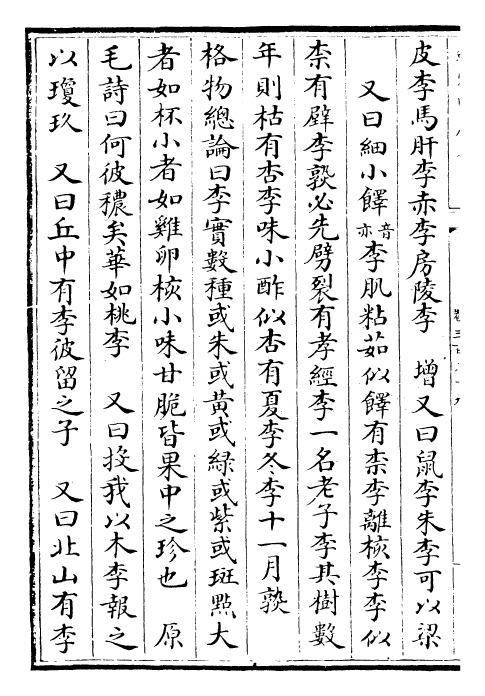 皮李馬肝李赤李房陵李　增又曰鼠李朱李可以梁
又曰細小䭞音亦李肌粘茹似䭞有柰李離核李李似
柰有劈李熟必先劈裂有孝經李一名老子李其樹數
年則枯有杏李味小酢似杏有夏李冬李十一月熟
格物總論曰李實數種或朱或黃或綠或紫或斑㸃大
者如杯小者如雞卵核小味甘脆皆果中之珍也　原
毛詩曰何彼穠矣華如桃李　又曰投我以木李報之
以瓊玖　又曰丘中有李彼留之子　又曰北山有李